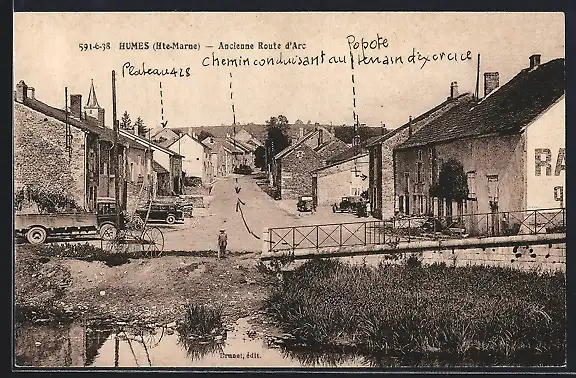 591-6-38 HUMES (Hte-Marne) — Ancienne Route d'Arc
Popote
Plateau 428
Chemin conduisant au terrain d'exercice
RA
Brunet, édit.